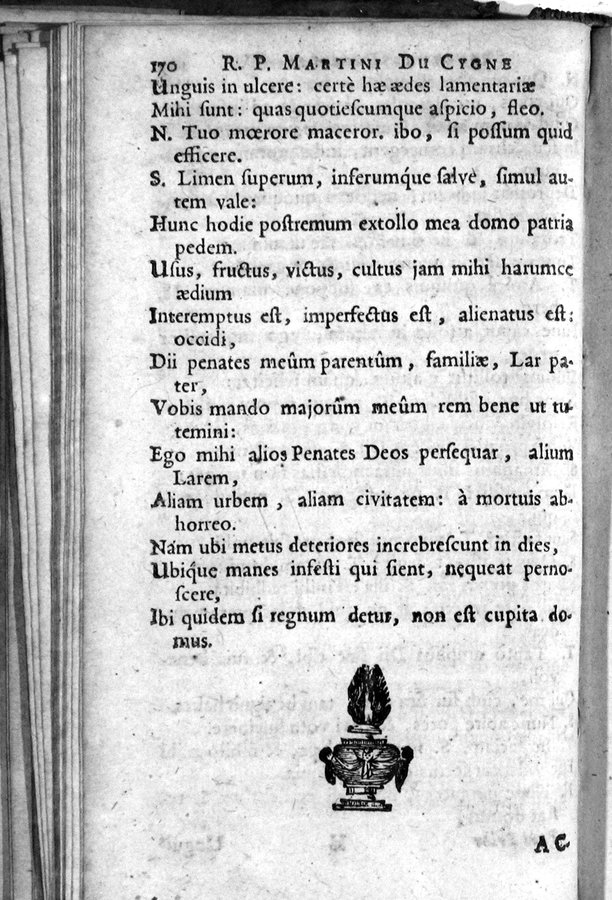 170 R. P. MARTINI DU CYGNE
Unguis in ulcere: certè hæ ædes lamentariæ
Mihi sunt: quas quotiescumque aspicio, fleo.
N. Tuo mœrore maceror. ibo, si possum quid
efficere.
S. Limen superum, inferumq́ue salve, simul au-
tem vale:
Hunc hodie postremum extollo mea domo patria
pedem.
Usus, fructus, victus, cultus jam mihi harumce
ædium
Interemptus est, imperfectus est, alienatus est:
occidi,
Dii penates meûm parentûm, familiæ, Lar pa-
ter,
Vobis mando majorûm meûm rem bene ut tu-
temini:
Ego mihi alios Penates Deos persequar, alium
Larem,
Aliam urbem, aliam civitatem: à mortuis ab-
horreo.
Nam ubi metus deteriores increbrescunt in dies,
Ubiq́ue manes infesti qui sient, nequeat perno-
scere,
Ibi quidem si regnum detur, non est cupita do-
mus.
AC